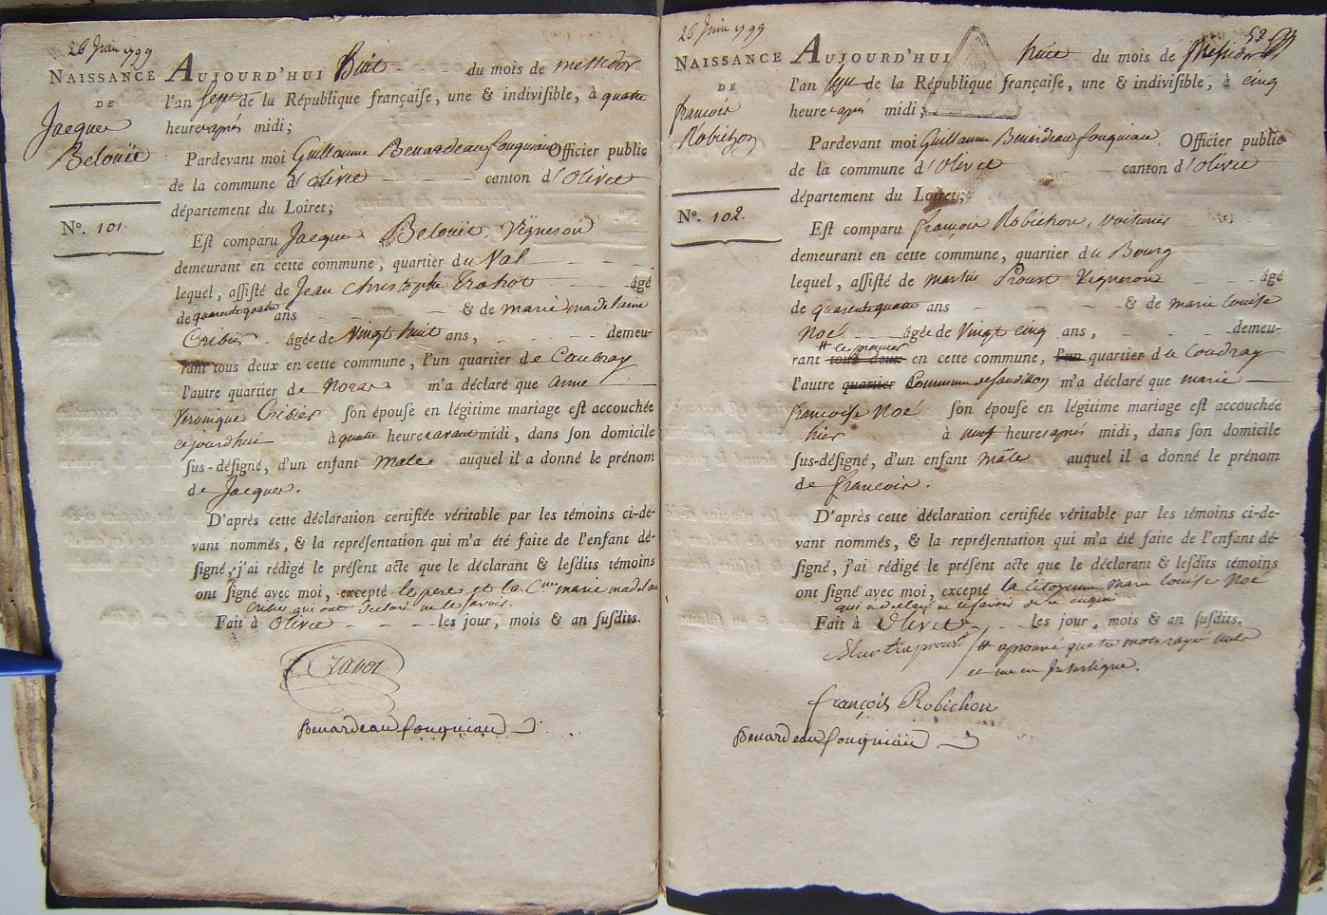 26 Juin 1799
NAISSANCE
DE
Jacques
Belouïe
N°. 101.
AUJOURD'HUI huit du mois de messidor
l'an sept de la République françaiſe, une & indiviſible, à quatre
heures après midi;
Pardevant moi Guillaume Benardeau fouqueau Officier public
de la commune d'olivet canton d'Olivet
département du Loiret;
Eſt comparu Jacques Belouïe, Vigneron
demeurant en cette commune, quartier du Val
lequel, aſſiſté de Jean Christophe Trahot âgé
de quarente quatre ans & de marie madelaine
Cribier âgée de Vingt huit ans, demeu-
rant tous deux en cette commune, l'un quartier de Coudray
l'autre quartier de m'a déclaré que anne
Veronique Cribier ſon épouſe en légitime mariage eſt accouchée
cejourdhui à quatre heures avant midi, dans ſon domicile
ſus-déſigné, d'un enfant male auquel il a donné le prénom
de Jacques.
D'après cette déclaration certifiée véritable par les témoins ci-de-
vant nommés, & la repréſentation qui m'a été faite de l'enfant dé-
ſigné, j'ai rédigé le préſent acte que le déclarant & leſdits témoins
ont ſigné avec moi, excepté le pere et la C.enne marie madelaine
Cribier qui ont declaré ne le savoir.
Fait à Olivet les jour, mois & an ſuſdits.
Trahot
Benardeau fouqueau
26 Juin 1799
52
NAISSANCE
DE
françois
Robichon
N°. 102.
AUJOURD'HUI huit du mois de Messidor
l'an sept de la République françaiſe, une & indiviſible, à cinq
heures après midi;
Pardevant moi Guillaume Benardeau fouqueau Officier public
de la commune d'Olivet canton d'Olivet
département du Loiret;
Eſt comparu françois Robichon, voiturier
demeurant en cette commune, quartier du Bourg
lequel, aſſiſté de martin Proust Vigneron âgé
de quarente quatre ans & de marie louise
Noé âgée de Vingt cinq ans, demeu-
# le premier
rant tous deux en cette commune, l'un quartier du Coudray
l'autre quartier Commune de m'a déclaré que marie
francoise Noé ſon épouſe en légitime mariage eſt accouchée
hier à neuf heures après midi, dans ſon domicile
ſus-déſigné, d'un enfant mâle auquel il a donné le prénom
de francois.
D'après cette déclaration certifiée véritable par les témoins ci-de-
vant nommés, & la repréſentation qui m'a été faite de l'enfant dé-
ſigné, j'ai rédigé le préſent acte que le déclarant & leſdits témoins
ont ſigné avec moi, excepté la Citoyenne Marie louise Noé
qui a declaré ne le savoir de ce enquise
Fait à Olivet les jour, mois & an ſuſdits.
# aprouvé quatre mots rayé nuls
et un en Interligne.
françois Robichon
Benardeau fouqueau